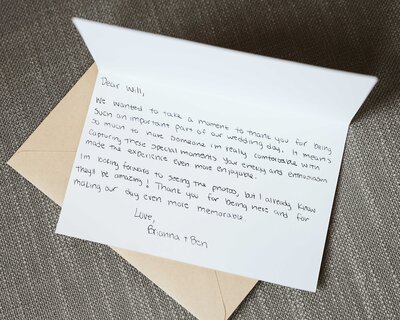 Dear Will,
We wanted to take a moment to thank you for being
such an important part of our wedding day. It means
so much to have someone I'm really comfortable with
capturing these special moments. Your energy and enthusiasm
made the experience even more enjoyable.
I'm looking forward to seeing the photos, but I already know
they'll be amazing! Thank you for being here and for
making our day even more memorable.
Love,
Brianna + Ben